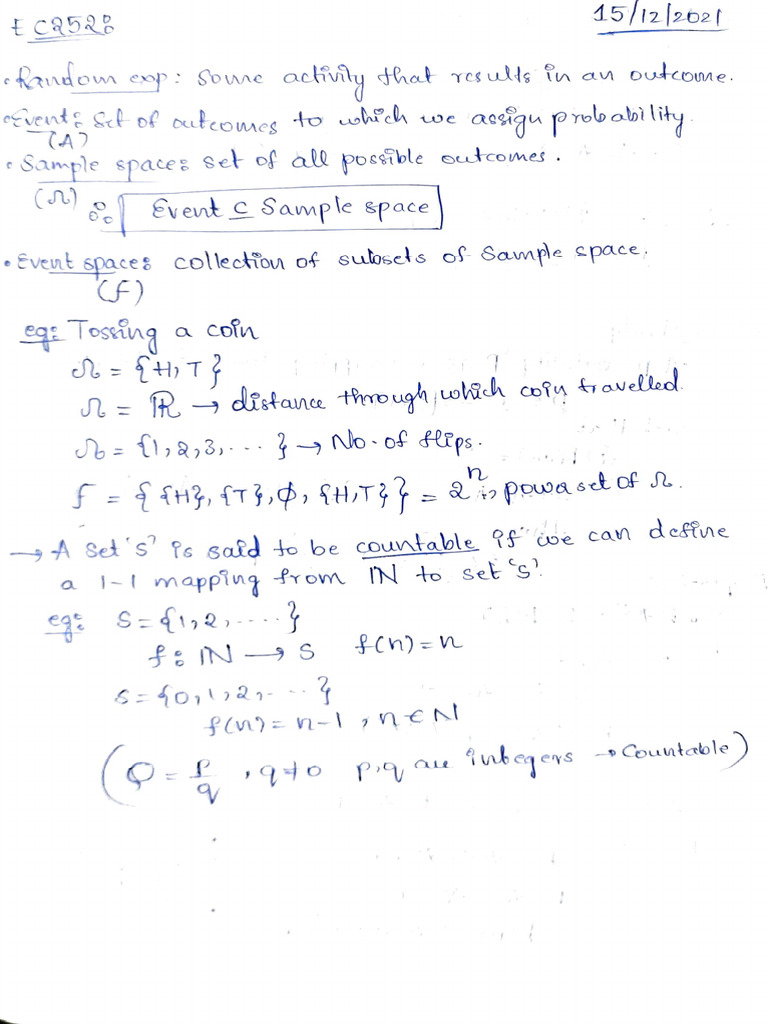 EC252:
15/12/2021
• Random exp: some activity that results in an outcome.
• Event: Set of outcomes to which we assign probability.
(A)
• Sample space: set of all possible outcomes.
(Ω) ∴ Event ⊆ Sample space
• Event space: collection of subsets of sample space.
(f)
eg: Tossing a coin
Ω = {H, T}
Ω = ℝ → distance through which coin travelled.
Ω = {1, 2, 3, ....} → No. of flips.
f = { {H}, {T}, ϕ, {H,T} } = 2^Ω, power set of Ω.
→ A set 's' is said to be countable if we can define
a 1-1 mapping from IN to set 's'.
eg: S = {1, 2, .....}
f: IN → S f(n) = n
S = {0, 1, 2, ....}
f(n) = n-1, n ∈ N
(Q = p/q, q≠0 p,q are integers → Countable)